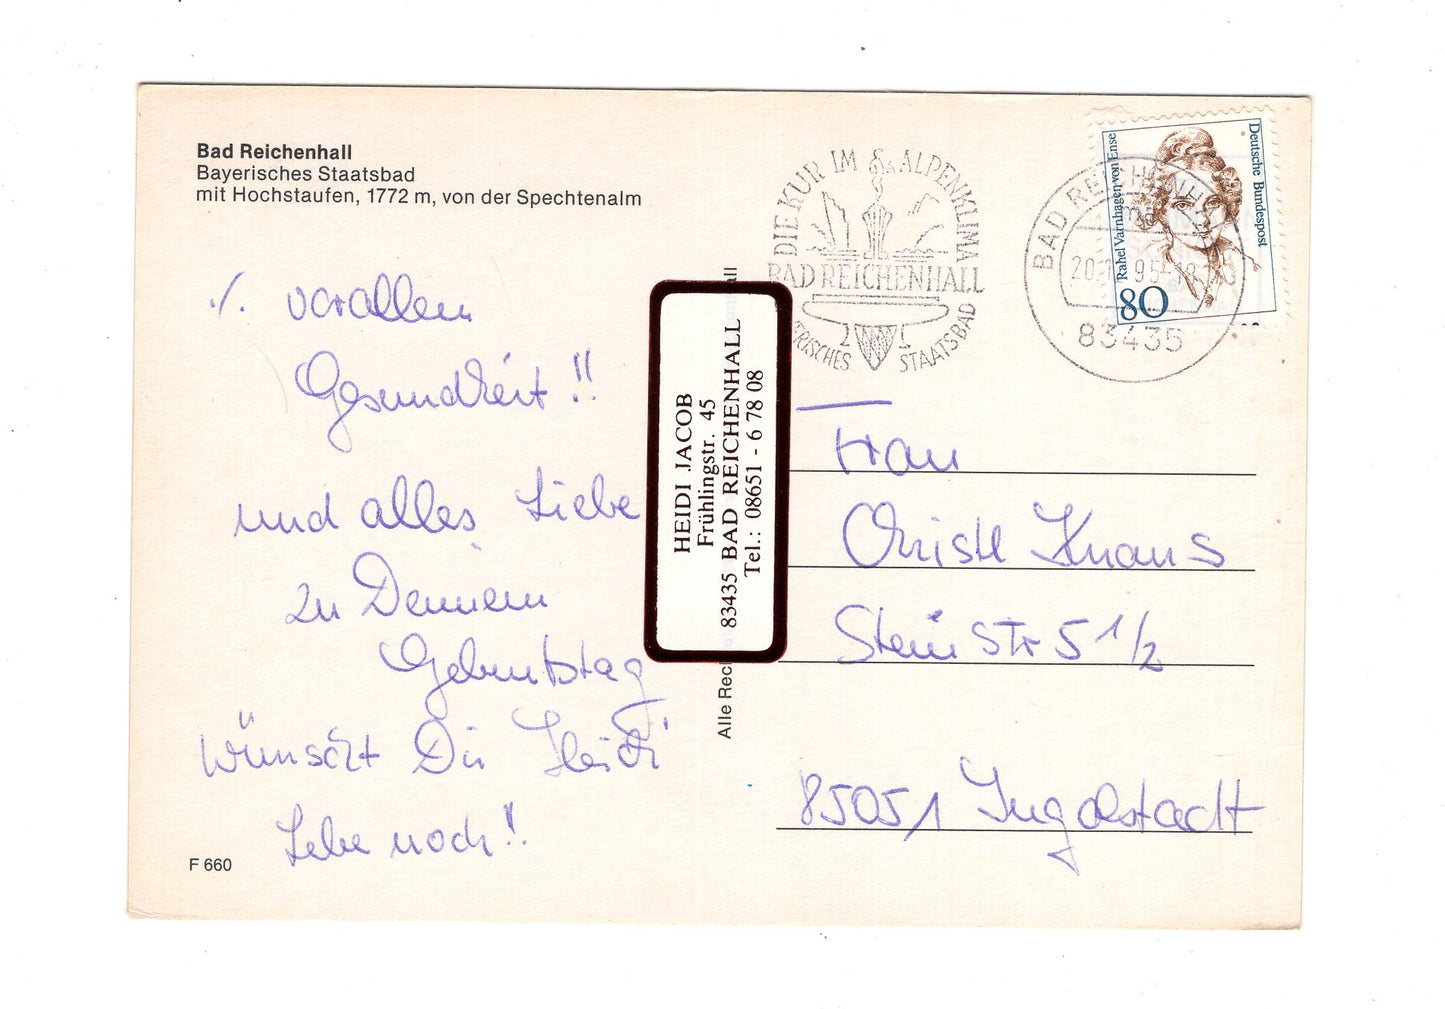 Bad Reichenhall
Bayerisches Staatsbad
mit Hochstaufen, 1772 m, von der Spechtenalm
./. vorallem
Gesundheit !!
und alles Liebe
zu Deinem
Geburtstag
wünscht Dir Heidi
Lebe noch!!
F 660
Alle Rec
HEIDI JACOB
Frühlingstr. 45
83435 BAD REICHENHALL
Tel.: 08651 - 6 78 08
DIE KUR IM ALPENKLIMA
BAD REICHENHALL
RISCHES STAATSBAD
BAD REICHENHALL
83435
Deutsche Bundespost
Rahel Varnhagen von Ense
80
Frau
Christl Knaus
Stein Str 5 1/2
85051 Ingolstadt